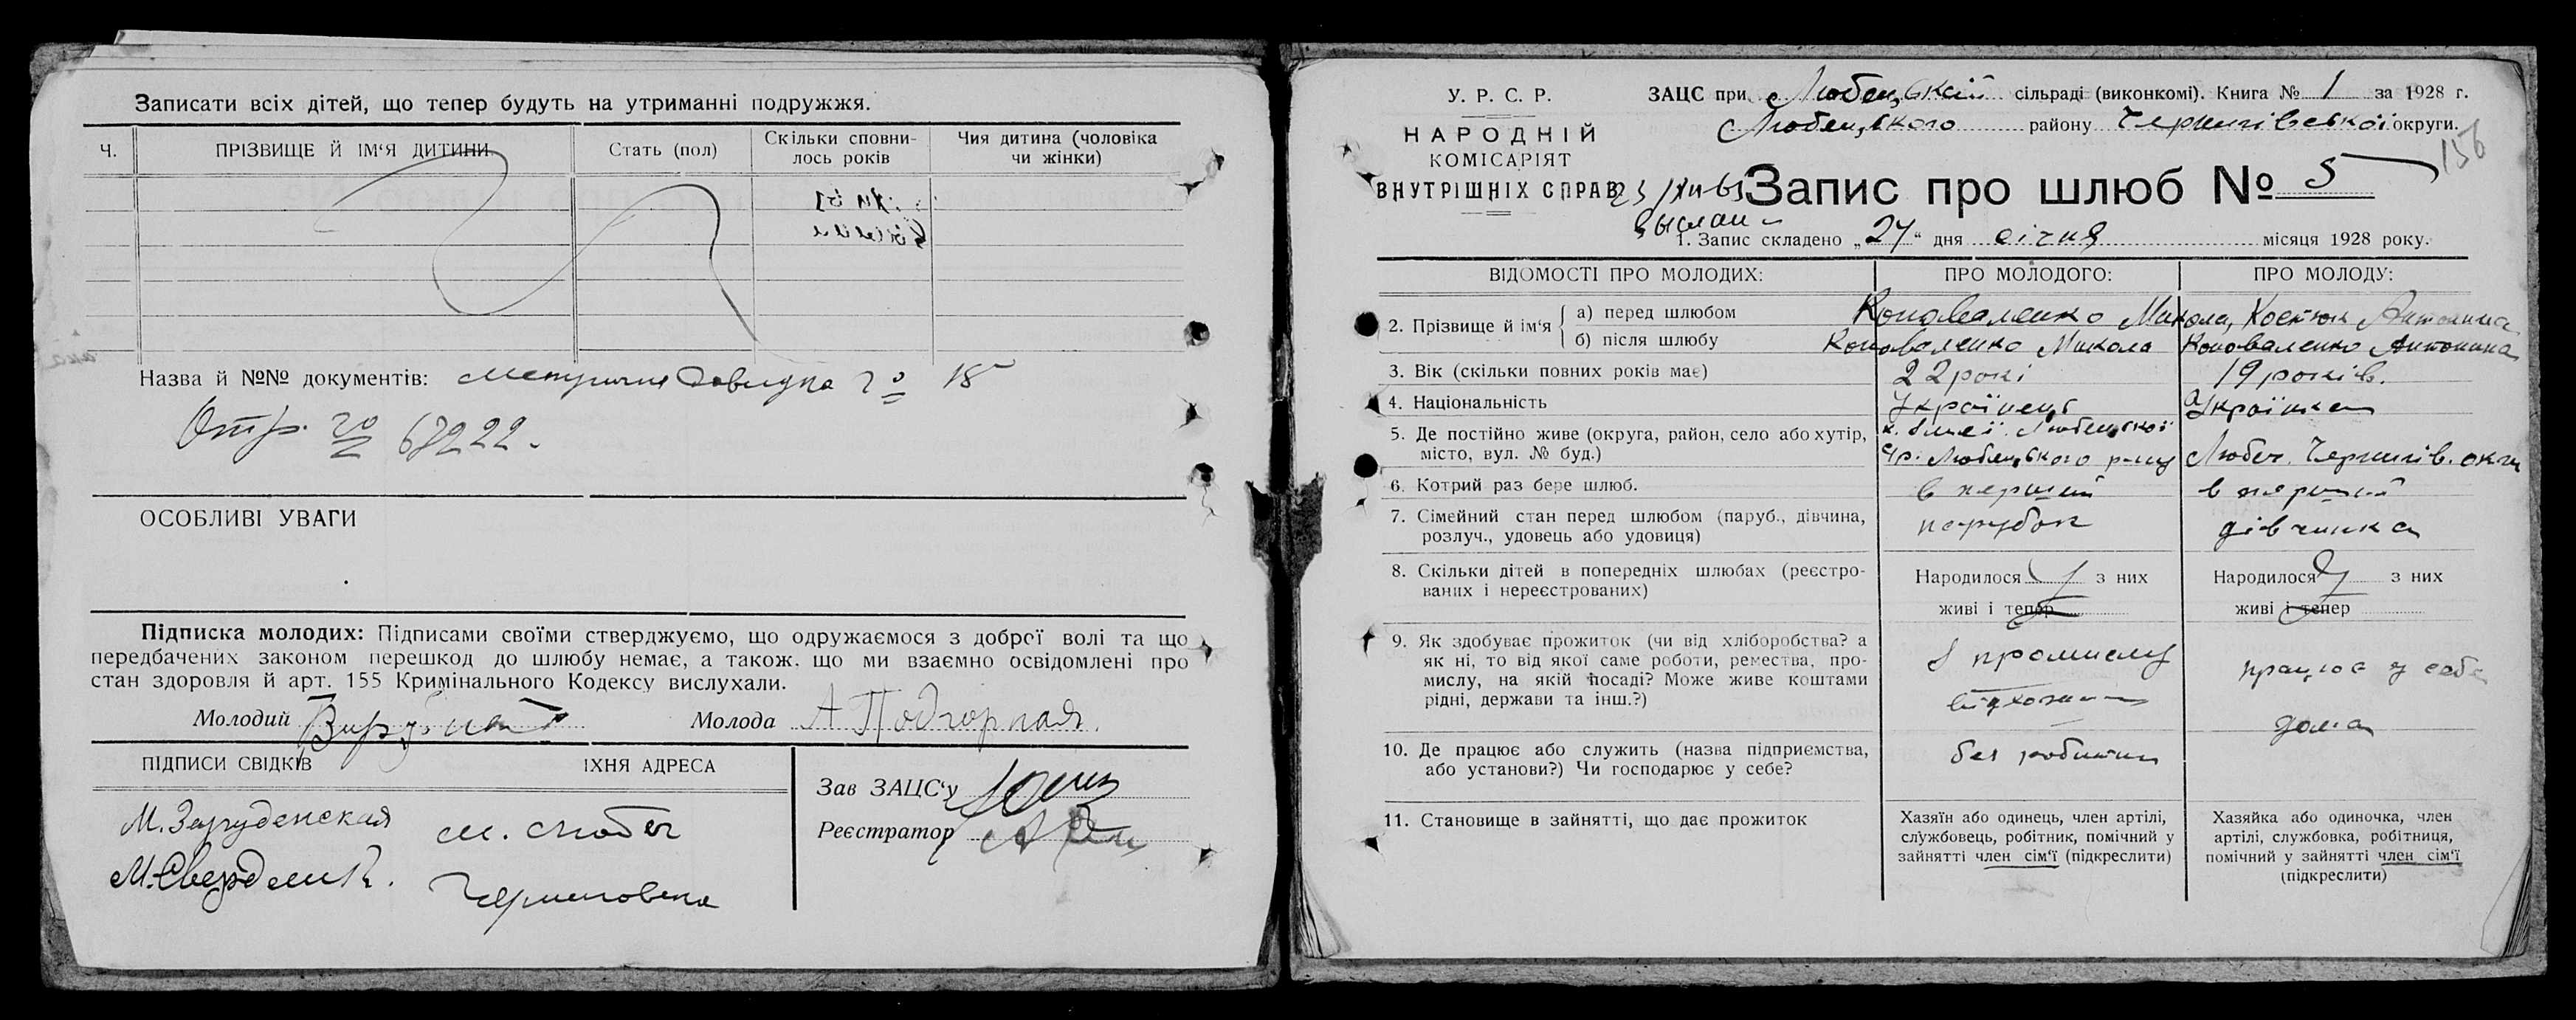 Записати всіх дітей, що тепер будуть на утриманні подружжя.
Ч.
ПРІЗВИЩЕ Й ІМ‘Я ДИТИНИ
Стать (пол)
Скільки сповни-
лось років
Чия дитина (чоловіка
чи жінки)
Назва й №№ документів: довидка 15
Отр. 20
ОСОБЛИВІ УВАГИ
Підписка молодих: Підписами своїми стверджуємо, що одружаємося з доброї волі та що
передбачених законом перешкод до шлюбу немає, а також. що ми взаємно освідомлені про
стан здоровля й арт. 155 Кримінального Кодексу вислухали.
Молодий
Молода А Подгорная.
ПІДПИСИ СВІДКІВ
ЇХНЯ АДРЕСА
М. м. Любеч
М.
Зав ЗАЦС‘у
Реєстратор
У. Р. С. Р.
НАРОДНІЙ
КОМІСАРІЯТ
ВНУТРІШНІХ СПРАВ
ЗАЦС при Любецькій сільраді (виконкомі). Книга № 1 за 1928 г.
Любецького району Чернигівської округи.
156
Запис про шлюб № 5
выслан
1. Запис складено „24“ дня січня місяця 1928 року.
ВІДОМОСТІ ПРО МОЛОДИХ:
ПРО МОЛОДОГО:
ПРО МОЛОДУ:
2. Прізвище й ім‘я
а) перед шлюбом
Коноваленко Микола, Костюк Антонина
б) після шлюбу
Коноваленко Микола
Коноваленко Антонина
3. Вік (скільки повних років має)
22 рокі
19 років.
4. Національність
Українець
Українка
5. Де постійно живе (округа, район, село або хутір,
місто, вул. № буд.)
Любецької
с/р. Любецького р-ну
Любеч. Чернигів. окги
6. Котрий раз бере шлюб.
в перший
в перший
7. Сімейний стан перед шлюбом (паруб., дівчина,
розлуч., удовець або удовиця)
парубок
дівчинка
8. Скільки дітей в попередніх шлюбах (реєстро-
ваних і нереєстрованих)
Народилося з них
живі і тепер
Народилося з них
живі і тепер
9. Як здобуває прожиток (чи від хліборобства? а
як ні, то від якої саме роботи, ремества, про-
мислу, на якій посаді? Може живе коштами
рідні, держави та інш.?)
з промислу
працює у себе
дома
10. Де працює або служить (назва підприємства,
або установи?) Чи господарює у себе?
без
11. Становище в зайнятті, що дає прожиток
Хазяїн або одинець, член артілі,
службовець, робітник, помічний у
зайнятті член сім‘ї (підкреслити)
Хазяйка або одиночка, член
артілі, службовка, робітниця,
помічний у зайнятті член сім‘ї
(підкреслити)